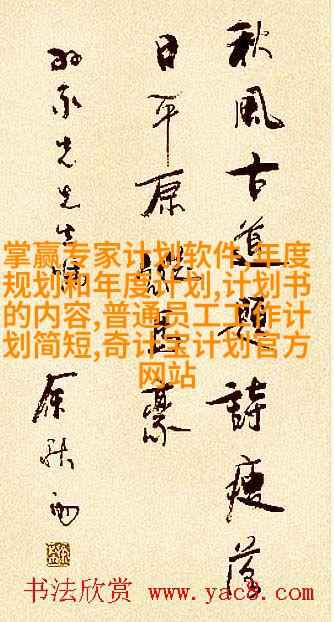 秋風古道題詩瘦落
日平原縱馬豪
先生嘱 余秋雨
掌赢专家计划软件,年度
规划和年度计划,计划书
的内容,普通员工工作计
划简短,奇计宝计划官方
网站
书法欣赏 www.yac8.com